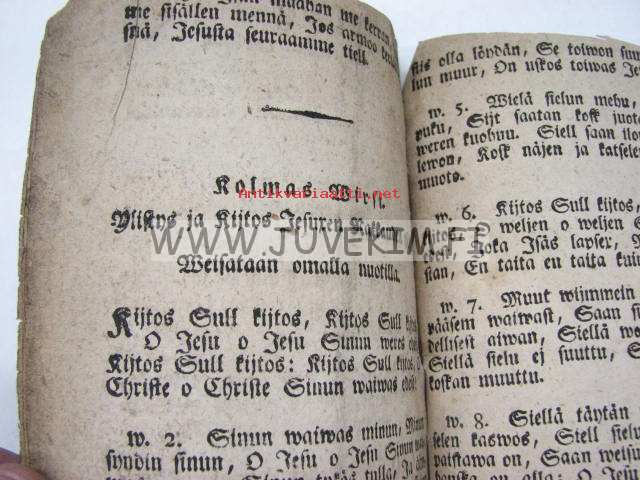 me sisällen mennä, Jos armoo
snä, Jesusta seuraamme tiell.
Kolmas Wirsi.
Ylistys ja Kijtos Jesuxen
Weisataan omalla nuotilla.
Kijtos Sull kijtos, Kijtos Sull
O Jesu o Jesu Sinun weres
Kijtos Sull kijtos: Kijtos Sull kijtos,
Christe o Christe Sinun waiwas edest:
w. 2. Sinun waiwas minun,
syndin sinun, O Jesu o Jesu Sinun
Sinun tykäs tulla, Ja
stis olla löydän, Se toiwon
lun muur, On uskos toiwas
w. 5. Wielä sielun mehu,
puku, Sijt saatan koff
weren kuohnu. Siell saan
lewon, Kosk näjen ja
muoto.
w. 6. Kijtos Sull kijtos,
o weljen o weljen
Joka Isäs lapsex,
stan, En taita eu taita
w. 7. Muut wijmmein
pääsem waiwast, Saan
dellisest aiwan, Siellä
Siellä sielu ej suuttu,
koskan muuttu.
w. 8. Siellä täytän
selen kaswos, Siell
paistawa on, Saan
on alla: O Jesu
Antikvariaatti.net
WWW.JUVEKIM.FI